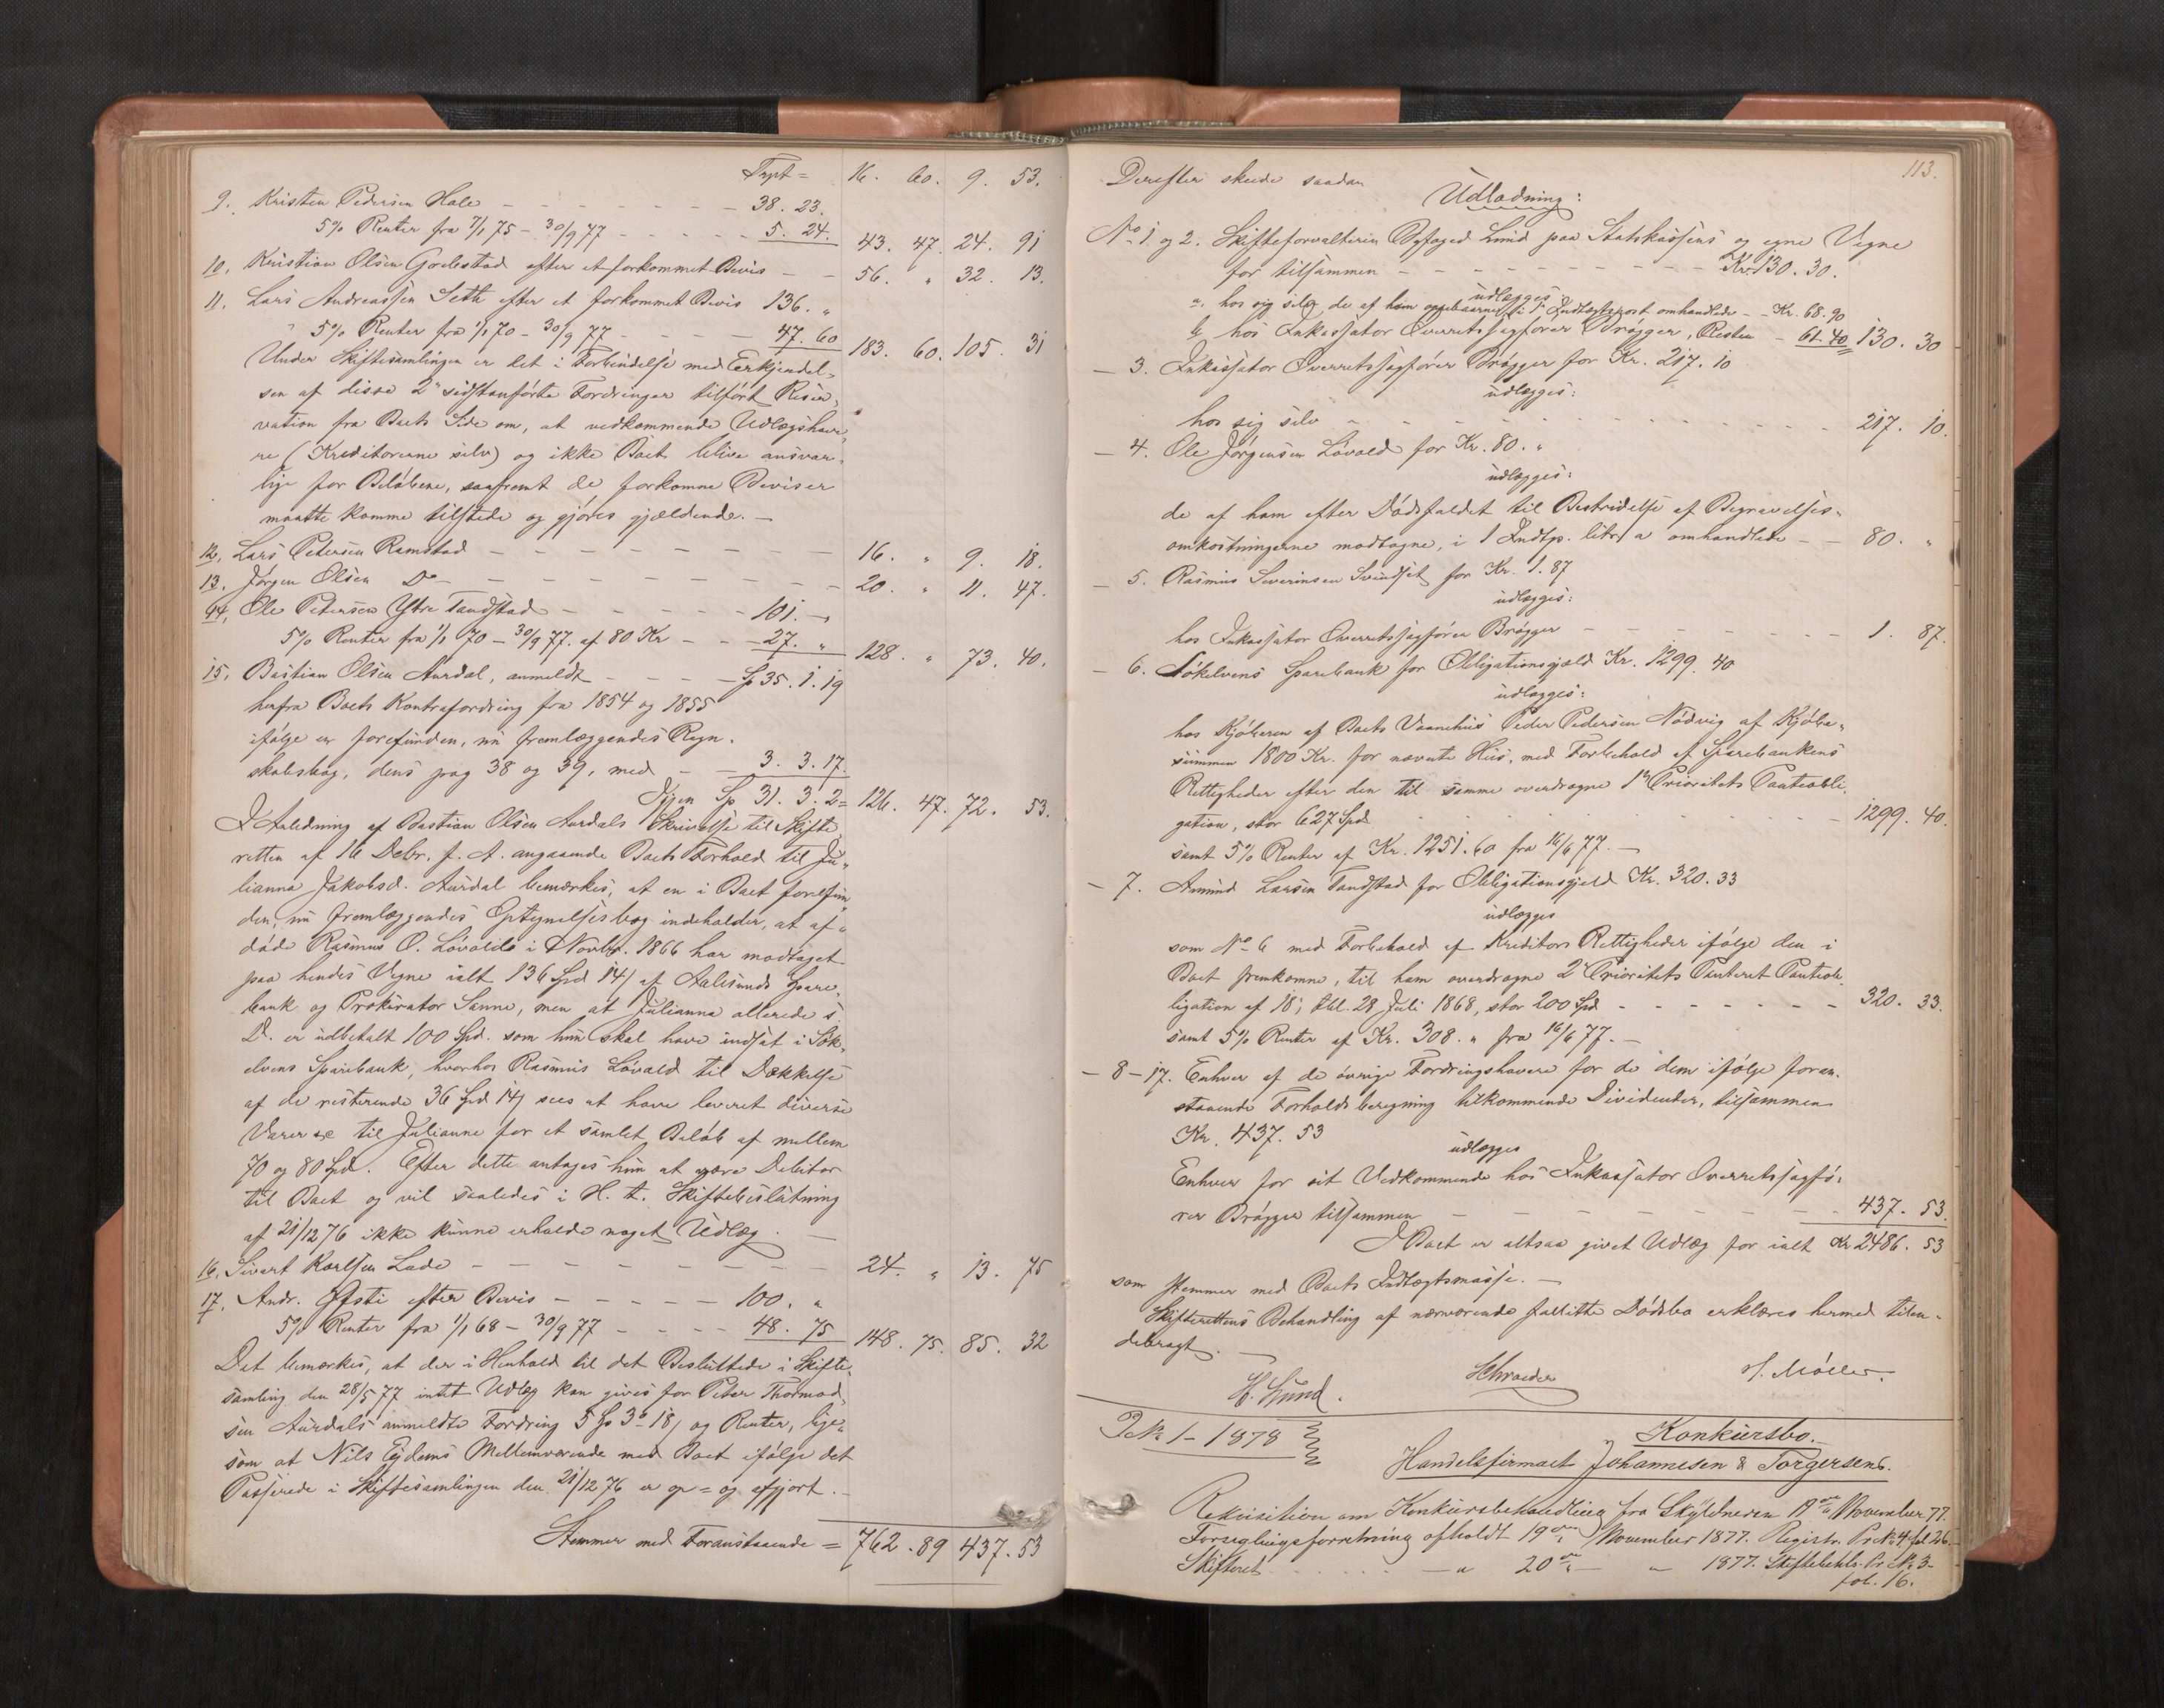 Trpt = 16. 60. 9. 53.
9. Kristen Pedersen Hole — 38. 23.
5% Renter fra 7/1 75 - 30/9 77 — 5. 24. 43. 47. 24. 91
10. Kristian Olsen Gjelestad efter et forkommet Bevis — 56. " 32. 13.
11. Lars Andreassen Seth efter et forkommet Bevis 136. "
" 5% Renter fra 1/1 70 - 30/9 77 — 47. 60 183. 60. 105. 31
Under Skiftesamlingen er det i Forbindelse med Erkjendel-
sen af disse 2de sidstanførte Fordringer tilført Reser-
vation fra Boets Side om, at vedkommende Udlægshave-
re (Kreditorerne selv) og ikke Boet blive ansvar-
lige for Beløbene, saafremt de forkomne Beviser
maatte komme tilstede og gjøres gjældende. —
12. Lars Petersen Ramstad — 16. " 9. 18.
13. Jørgen Olsen Do — 20. " 11. 47.
14. Ole Petersen Ytre Tandstad — 101. "
5% Renter fra 1/1 70 - 30/9 77. af 80 Kr — 27. " 128. " 73. 40.
15. Bastian Olsen Aurdal, anmeldt — Sp 35. 1. 19
herfra Boets Kontrafordring fra 1854 og 1855
ifølge en forefunden, nu fremlæggendes Regn-
skabsbog, dens pag 38 og 39, med — 3. 3. 17.
Igjen Sp 31. 3. 2 = 126. 47. 72. 53.
I Anledning af Bastian Olsen Aurdals Skrivelse til Skifte-
retten af 16 Debr. f. A. angaaende Boets Forhold til Ju-
lianna Jakobsd. Aurdal bemærkes, at en i Boet forefun-
den, nu fremlæggendes Optegnelsesbog indeholder, at af-
døde Rasmus O. Løvolds i Novbr. 1866 har modtaget
paa hendes Vegne ialt 136 Spd 14 / af Aalesunds Spare-
bank og Prokurator Sanne, men at Julianna allerede s.
D. er udbetalt 100 Spd. som hun skal have indsat i Søk-
elvens Sparebank, hvorhos Rasmus Løvold til Dækkelse
af de resterende 36 Spd 14 / sees at have leveret diverse
Varer &c til Julianne for et samlet Beløb af mellem
70 og 80 Spd. Efter dette antages hun at være Debitor
til Boet og vil saaledes i H. t. Skiftebeslutning
af 21/12 76 ikke kunne erholde noget Udlæg. —
16. Sivert Karlsen Lade — 24. " 13. 75
17. Andr. Øfsti efter Bevis — 100. "
5% Renter fra 1/1 68 - 30/9 77 — 48. 75 148. 75. 85. 32
Det bemærkes, at der i Henhold til det Besluttede i Skifte-
samling den 28/5 77 intet Udlæg kan gives for Peter Thormod-
sen Aurdals anmeldte Fordring 5 Sp 3 18 / og Renter, lige-
som at Nils Ejdems Mellemværende med Boet ifølge det
Passerede i Skiftesamlingen den 21/12 76 er op= og afgjort. —
Stemmer med Foranstaaende = 762. 89 437. 53
113.
Derefter skeede saadan
Udlodning:
No 1. og 2. Skifteforvalteren Byfoged Lund paa Statskassens og egne Vegne
for tilsammen — Kr. 130. 30.
udlægges:
a. hos sig selv de af ham oppebaarne, i 1ste Indtægtspost omhandlede — Kr. 68. 90
b hos Inkassator Overretssagfører Brøgger, Resten — 61. 40 130. 30
— 3. Inkassator Overretssagfører Brøgger for Kr. 217. 10
udlægges:
hos sig selv — 217. 10.
— 4. Ole Jørgensen Løvold for Kr. 80. "
udlægges:
de af ham efter Dødsfaldet til Bestridelse af Begravelses-
omkostningerne modtagne, i 1 Indtp. litr. a omhandlede — 80. "
— 5. Rasmus Severinsen Svindset for Kr. 1. 87
udlægges:
hos Inkassator Overretssagfører Brøgger — 1. 87.
— 6. Søkelvens Sparebank for Obligationsgjæld Kr. 1299. 40
udlægges:
hos Kjøberen af Boets Vaanehus Peder Pedersen Nødvig af Kjøbe-
summen 1800 Kr. for nævnte Hus, med Forbehold af Sparebankens
Rettigheder efter den til samme overdragne 1ste Prioritets Panteobli-
gation, stor 627 Spd — 1299. 40.
samt 5% Renter af Kr. 1251. 60 fra 16/6 77. —
— 7. Amund Larsen Tandstad for Obligationsgjeld Kr. 320. 33
udlægges
som No 6 med Forbehold af Kreditors Rettigheder ifølge den i
Boet fremkomne, til ham overdragne 2 Prioritets Panteret Panteob-
ligation af 18, tbl. 28 Juli 1868, stor 200 Spd — 320. 33.
samt 5% Renter af Kr. 308. " fra 16/6 77. —
— 8 - 17. Enhver af de øvrige Fordringshavere for de dem ifølge foran-
staaende Forholdsberegning tilkommende Dividender, tilsammen
Kr. 437. 53
udlægges
Enhver for sit Vedkommende hos Inkassator Overretssagfø-
rer Brøgger tilsammen — 437. 53.
I Boet er altsaa givet Udlæg for ialt Kr 2486. 53
som stemmer med Boets Indtægtsmasse. —
Skifterettens Behandling af nærværende fallitte Dødsbo erklæres hermed tilen-
debragt. —
H. Lund. Schrøder S. Møller.
No 1 - 1878
Konkursbo. —
Handelsfirmaet Johannesen & Torgersens.
Rekvisition om Konkursbehandling fra Skyldneren November 77.
Forseglingsforretning afholdt 19de November 1877. Registr. Pr. No 4. fol 26.
Skifteret — " 20de — " 1877. Skiftebehl. Pr. No 3 -
fol. 16.